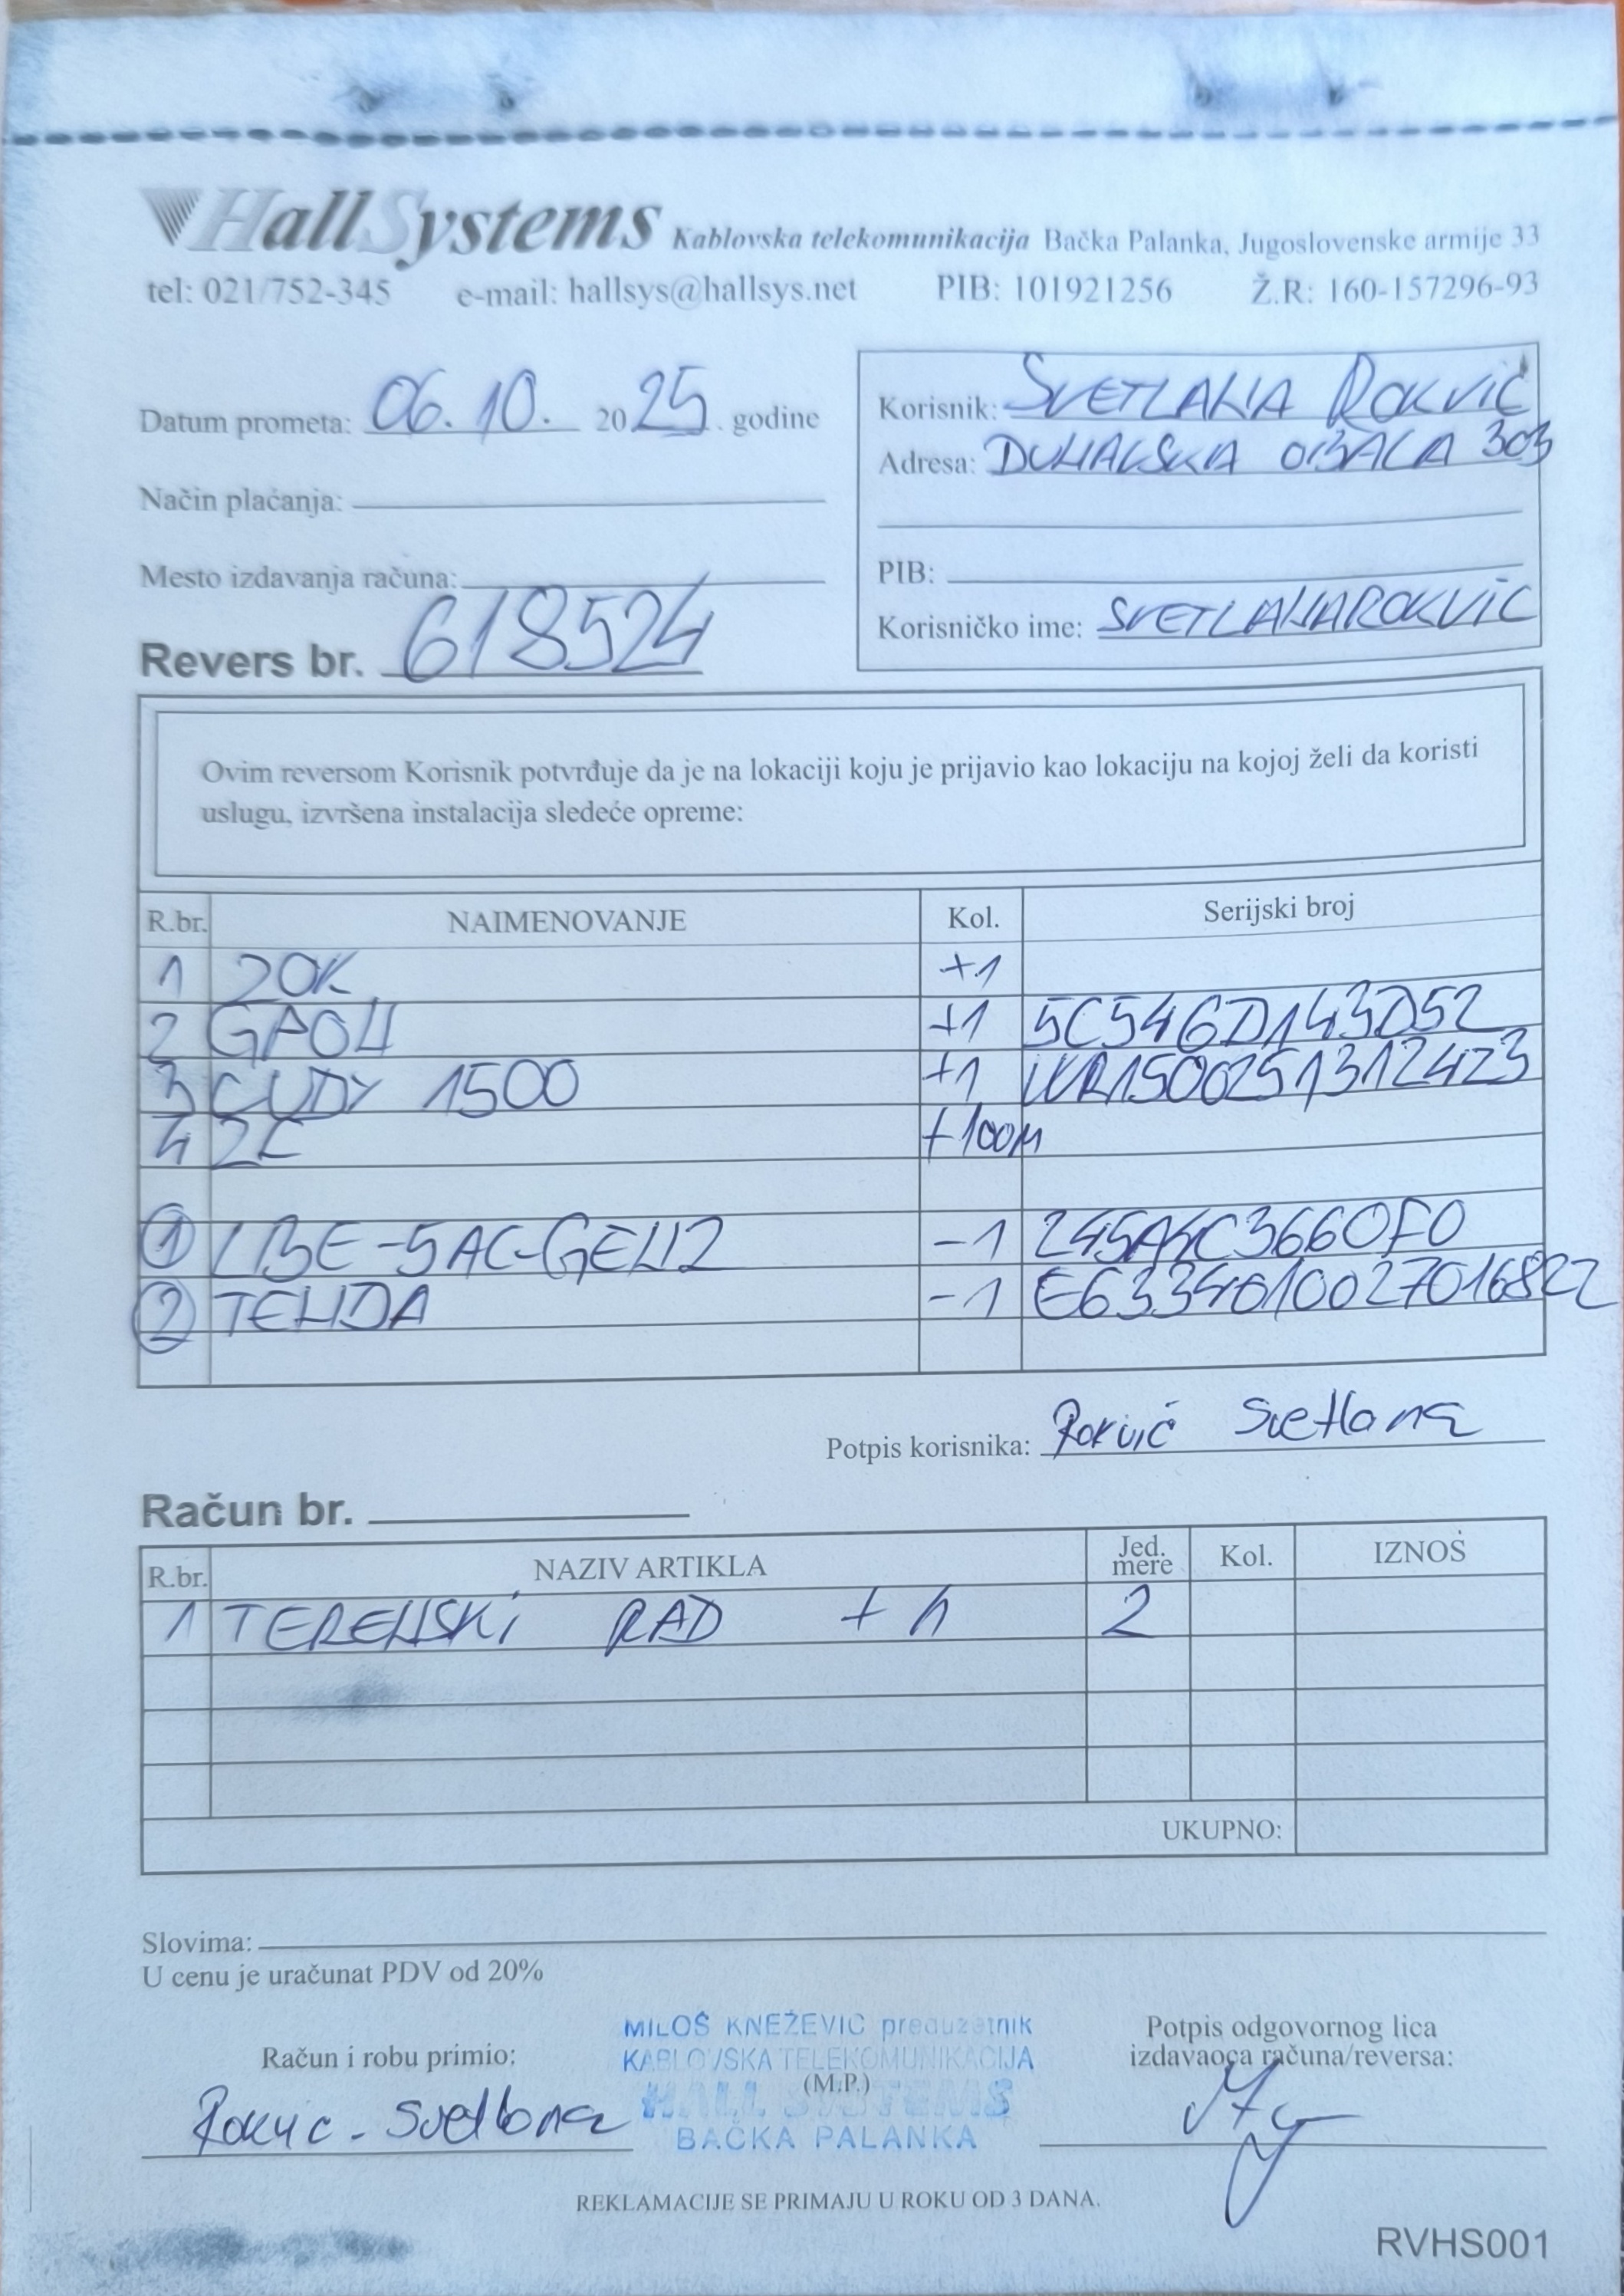 HallSystems Kablovska telekomunikacija Bačka Palanka, Jugoslovenske armije 33
tel: 021/752-345 e-mail: hallsys@hallsys.net PIB: 101921256 Ž.R: 160-157296-93
Datum prometa: 06.10. 2025. godine
Način plaćanja:
Mesto izdavanja računa:
Revers br. 618524
Korisnik: SVETLANA ROKVIĆ
Adresa: DUNAVSKA OBALA 303
PIB:
Korisničko ime: SVETLANAROKVIC
Ovim reversom Korisnik potvrđuje da je na lokaciji koju je prijavio kao lokaciju na kojoj želi da koristi
uslugu, izvršena instalacija sledeće opreme:
R.br. NAIMENOVANJE Kol. Serijski broj
1 ZOK +1
2 GPON +1 5C546D143D52
3 CUDY 1500 +1 WR1500251312423
4 2C +100M
1 LBE-5AC-GEN2 -1 245A4C3660F0
2 TENDA -1 E6334010027016822
Potpis korisnika: Rokvić Svetlana
Račun br.
R.br. NAZIV ARTIKLA Jed. mere Kol. IZNOS
1 TERENSKI RAD + h 2
UKUPNO:
Slovima:
U cenu je uračunat PDV od 20%
Račun i robu primio:
Rokvic - Svetlana
MILOŠ KNEŽEVIĆ preduzetnik
KABLOVSKA TELEKOMUNIKACIJA
(M.P.)
HALL SYSTEMS
BAČKA PALANKA
Potpis odgovornog lica
izdavaoca računa/reversa:
REKLAMACIJE SE PRIMAJU U ROKU OD 3 DANA.
RVHS001